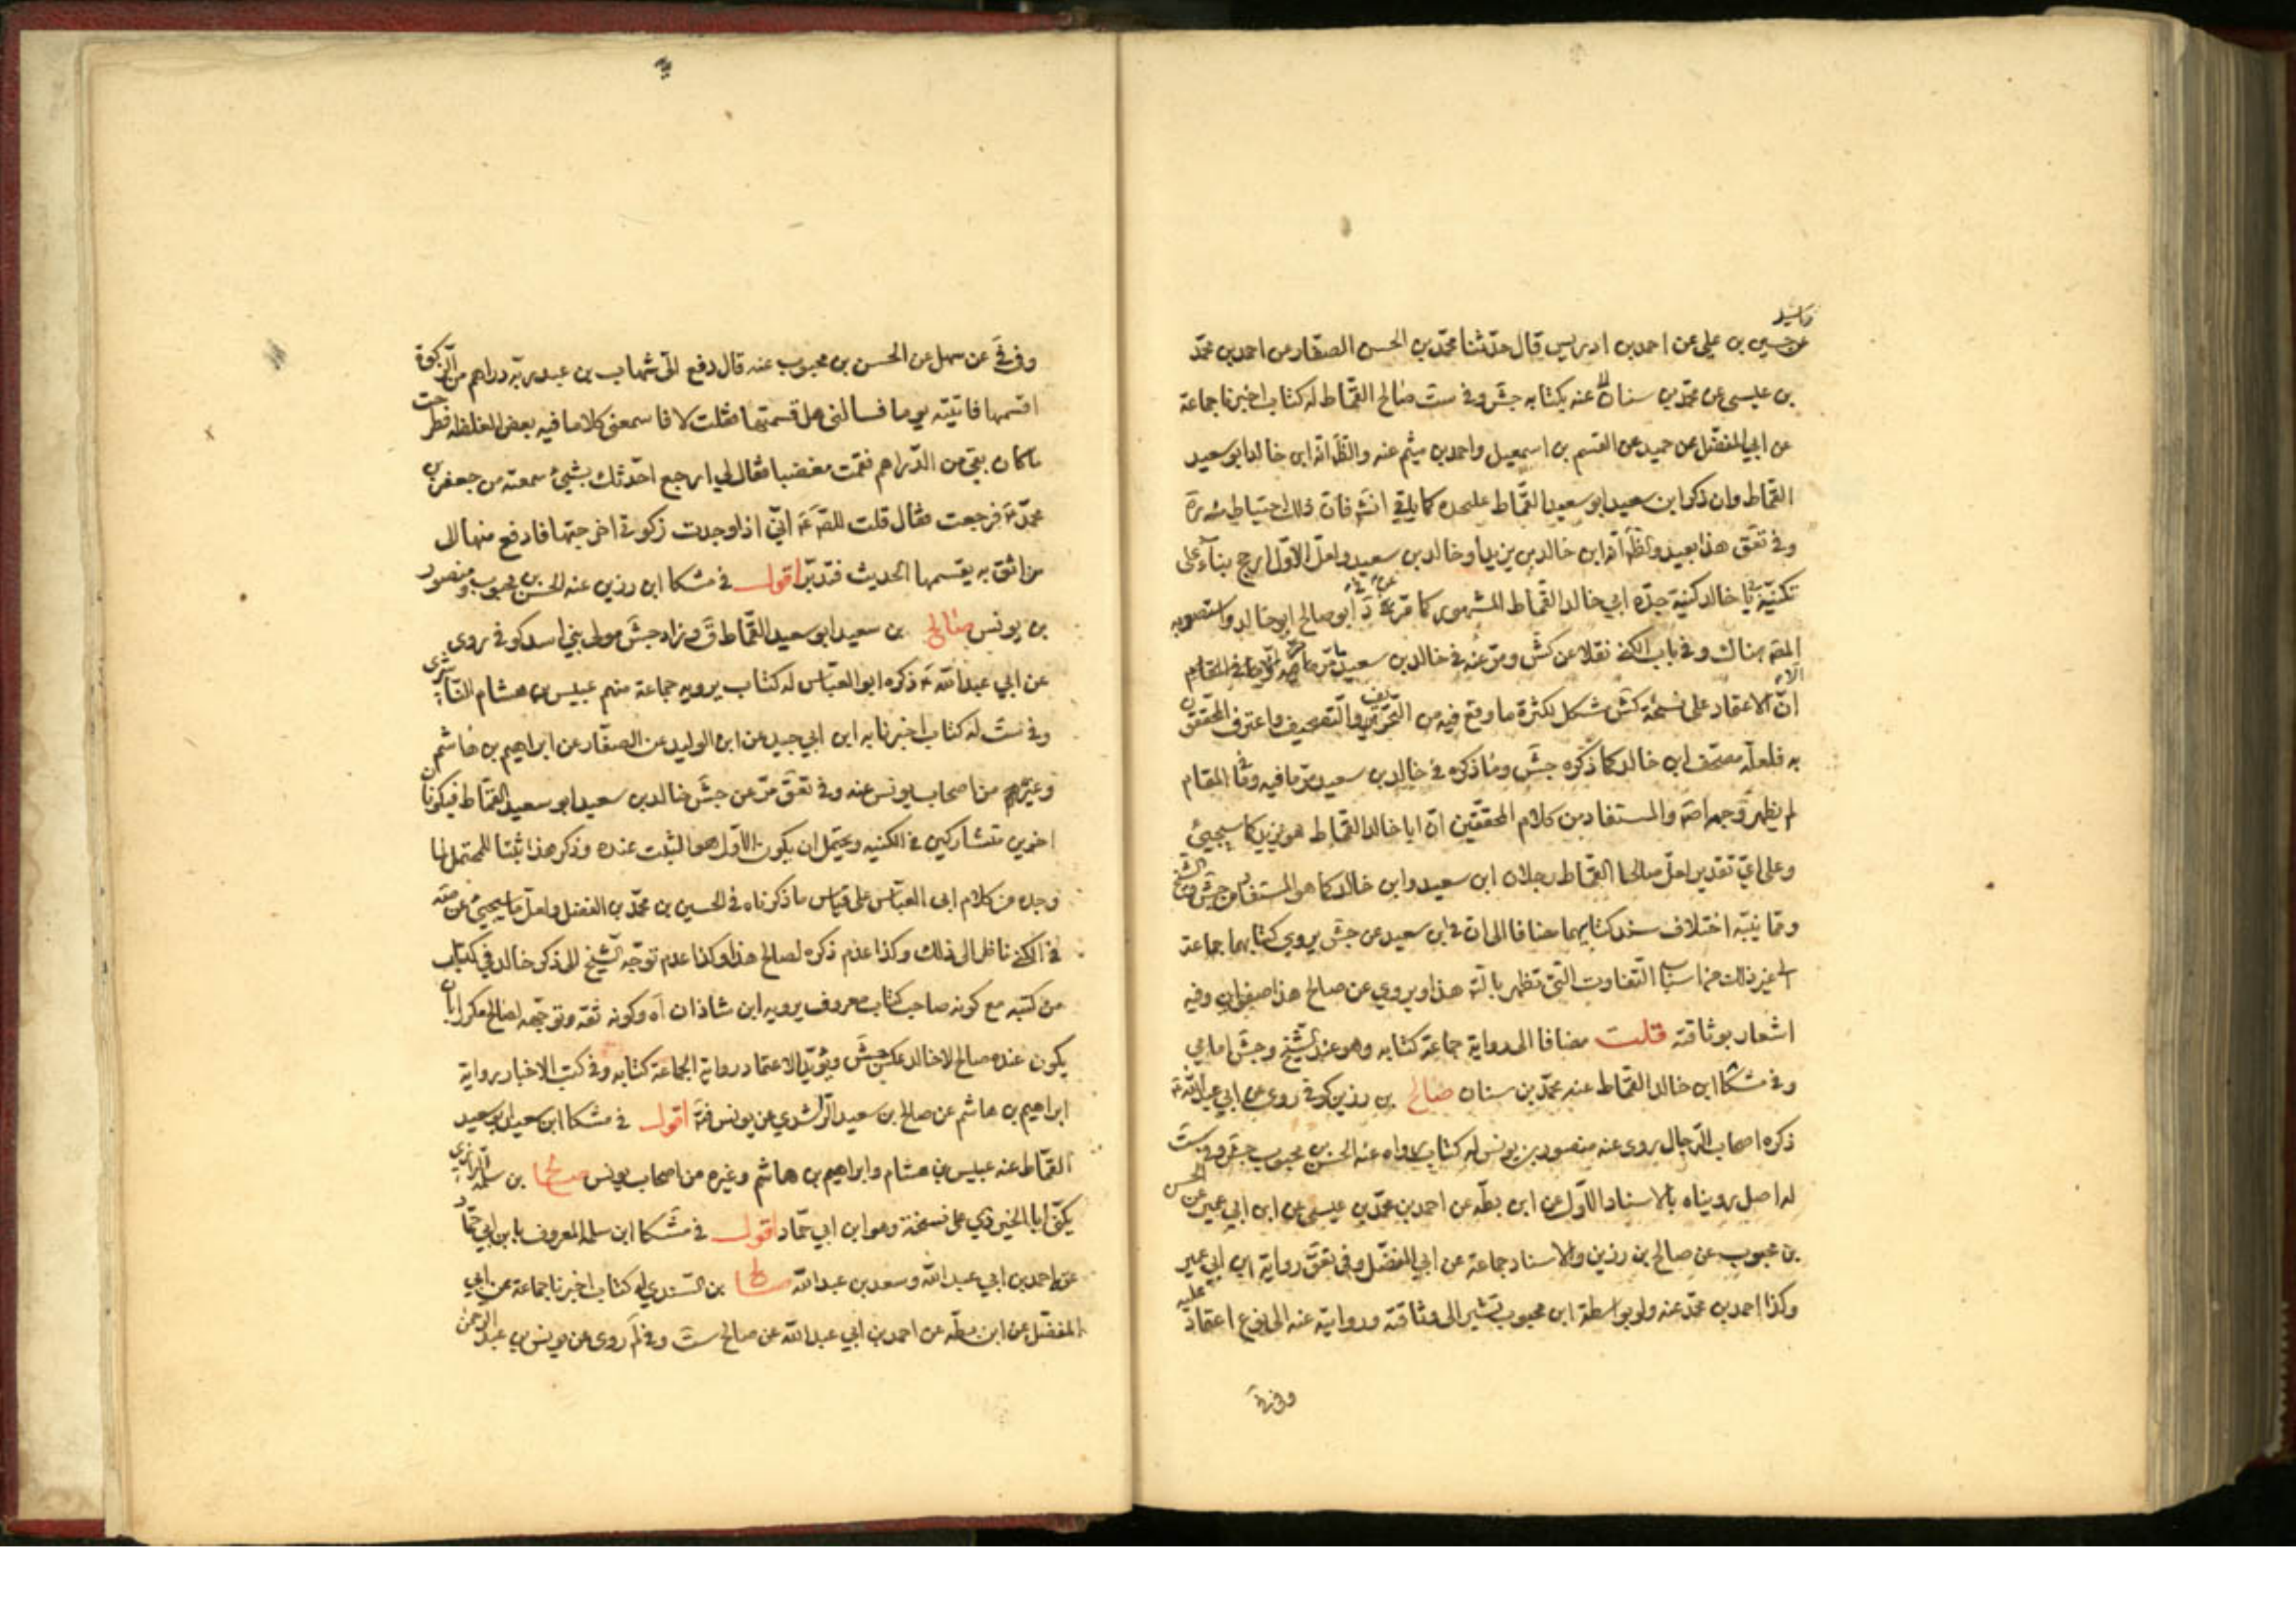 عن حسين بن علي عن احمد بن ادريس قال حدثنا محمد بن الحسن الصفار عن احمد بن محمد
بن عيسى عن محمد بن سنان عنه بكتابه جش وفي ست صالح القماط له كتاب اخبرنا جماعة
عن ابي المفضل عن حميد عن القسم بن اسمعيل واحمد بن ميثم عنه والظ انه ابن خالد ابو سعيد
القماط وان ذكر ابن سعيد ابو سعيد القماط عليحده كما ياتي انش فان ذلك احتياط منه ره
وفي تعق هذا بعيد والظ انه ابن خالد بن يزيد او خالد بن سعيد ولعل الاول ارجح بناء على
تكنية بابي خالد كنية جده ابي خالد القماط المشهور كما مر عن ابو صالح ابو خالد واستصوبه
المص هناك وفي باب الكنى نقلا عن كش ومر عنه في خالد بن سعيد
الا ان الاعتماد على نسخة كش مشكل لكثرة ما وقع فيه من التحريف والتصحيف واعترف المحققون
به فلعله مصحف ابن خالد كما ذكره جش وما ذكره في خالد بن سعيد مر ما فيه وفي المقام
لم يظهر وجهه اصة والمستفاد من كلام المحققين ان ابا خالد القماط هو يزيد كما سيجيئ
وعلى اي تقدير لعل صالحا القماط رجلان ابن سعيد وابن خالد كما هو المستفاد من جش والشيخ
ومما نبه اختلاف سند كتابيهما مضافا الى ان في ابن سعيد عن جش يروي كتابهما جماعة
الى غير ذلك من اسباب التفاوت التي تظهر بالتـ هذا ويروي عن صالح هذا صفوان وفيه
اشعار بوثاقته قلت مضافا الى رواية جماعة كتابه وهو عند الشيخ وجش امامي
وفي مشكا ابن خالد القماط عنه محمد بن سنان صالح بن رزين كوفي روى عن ابي عبد الله ع
ذكره اصحاب الرجال روى عنه منصور بن يونس له كتاب رواه عنه الحسن بن محبوب جش وفي ست
له اصل رويناه بالاسناد الاول عن ابن بطه عن احمد بن محمد بن عيسى عن ابن ابي عمير عن الحسن
بن محبوب عن صالح بن رزين والاسناد جماعة عن ابي المفضل وفي تعق رواية ابن ابي عمير
وكذا احمد بن محمد عنه ولو بواسطة ابن محبوب تشير الى وثاقته وروايته عنه الى نوع اعتماد عليه
وفي في
وفي في عن سهل عن الحسن بن محبوب عنه قال دفع الى شهاب بن عبد ربه دراهم من الزكوة
اقسمها فاتيته يوما فسالني هل قسمتها فقلت لا فاسمعني كلاما فيه بعض الغلظه فطرحت
ما كان بقي من الدراهم فقمت مغضبا فقال لي ارجع احدثك بشيئ سمعته من جعفر بن
محمد ع فرجعت فقال قلت للص ع اني اذا وجدت زكوتي اخرجتها فادفع منها الى
من اثق به يقسمها الحديث فتدبر اقول في مشكا ابن رزين عنه الحسن بن محبوب ومنصور
بن يونس صالح بن سعيد ابو سعيد القماط ق وزاد جش مولى بني اسد كوفي روى
عن ابي عبد الله ع ذكره ابو العباس له كتاب يرويه جماعة منهم عبيس بن هشام الناشري
وفي ست له كتاب اخبرنا به ابن ابي جيد عن ابن الوليد عن الصفار عن ابراهيم بن هاشم
وغيرهم من اصحاب يونس عنه وفي تعق مر عن جش خالد بن سعيد ابو سعيد القماط فيكونان
اخوين متشاركين في الكنيه ويحتمل ان يكون الاول هو المثبت عنده وذكر هذا
وجده من كلام ابي العباس على قياس ما ذكرناه في الحسين بن محمد بن الفضل ولعل ما سيجيئ عن
في الكنى ناظر الى ذلك وكذا عدم ذكره لصالح هذا وكذا عدم توجه الشيخ الى ذكر خالد في كتاب
من كتبه مع كونه صاحب كتاب معروف يرويه ابن شاذان اه وكونه ثقه وتوجهه لصالح مكررا بان
يكون عنده صالح لا خالد عكس جش ويؤيد الاعتماد رواية الجماعة كتابه وفي كتب الاخبار رواية
ابراهيم بن هاشم عن صالح بن سعيد الراشدي عن يونس فتا اقول في مشكا ابن سعيد ابو سعيد
القماط عنه عبيس بن هشام وابراهيم بن هاشم وغيره من اصحاب يونس صالح بن سلمه الرازي
يكنى ابا الخير دي على نسخة وهو ابن ابي حماد اقول في مشكا ابن سلمه المعروف بابن ابي حماد
عنه احمد بن ابي عبد الله وسعد بن عبد الله صالح بن السندي له كتاب اخبرنا جماعة عن ابي
المفضل عن ابن بطه عن احمد بن ابي عبد الله عن صالح ست وفي لم روى عن يونس بن عبد الرحمن